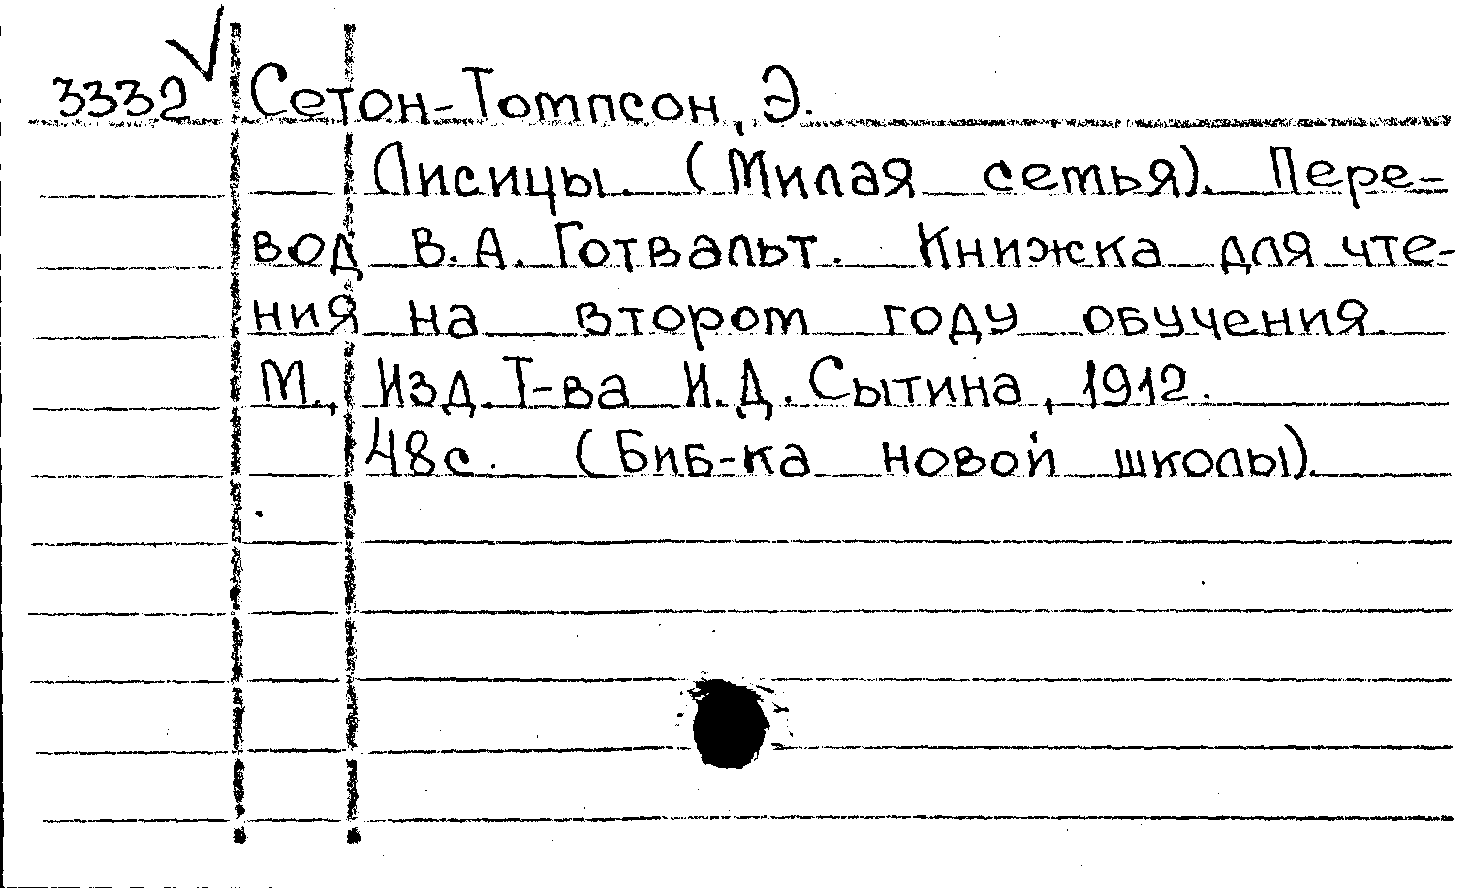 3332 Сетон-Томпсон, Э.
Лисицы. (Милая сетья). Пере-
вод В.А. Готвальт. Книжка для чте-
ния на втором году обучения
М., Изд. Т-ва И.Д. Сытина, 1912.
48с. (Биб-ка новой школы).